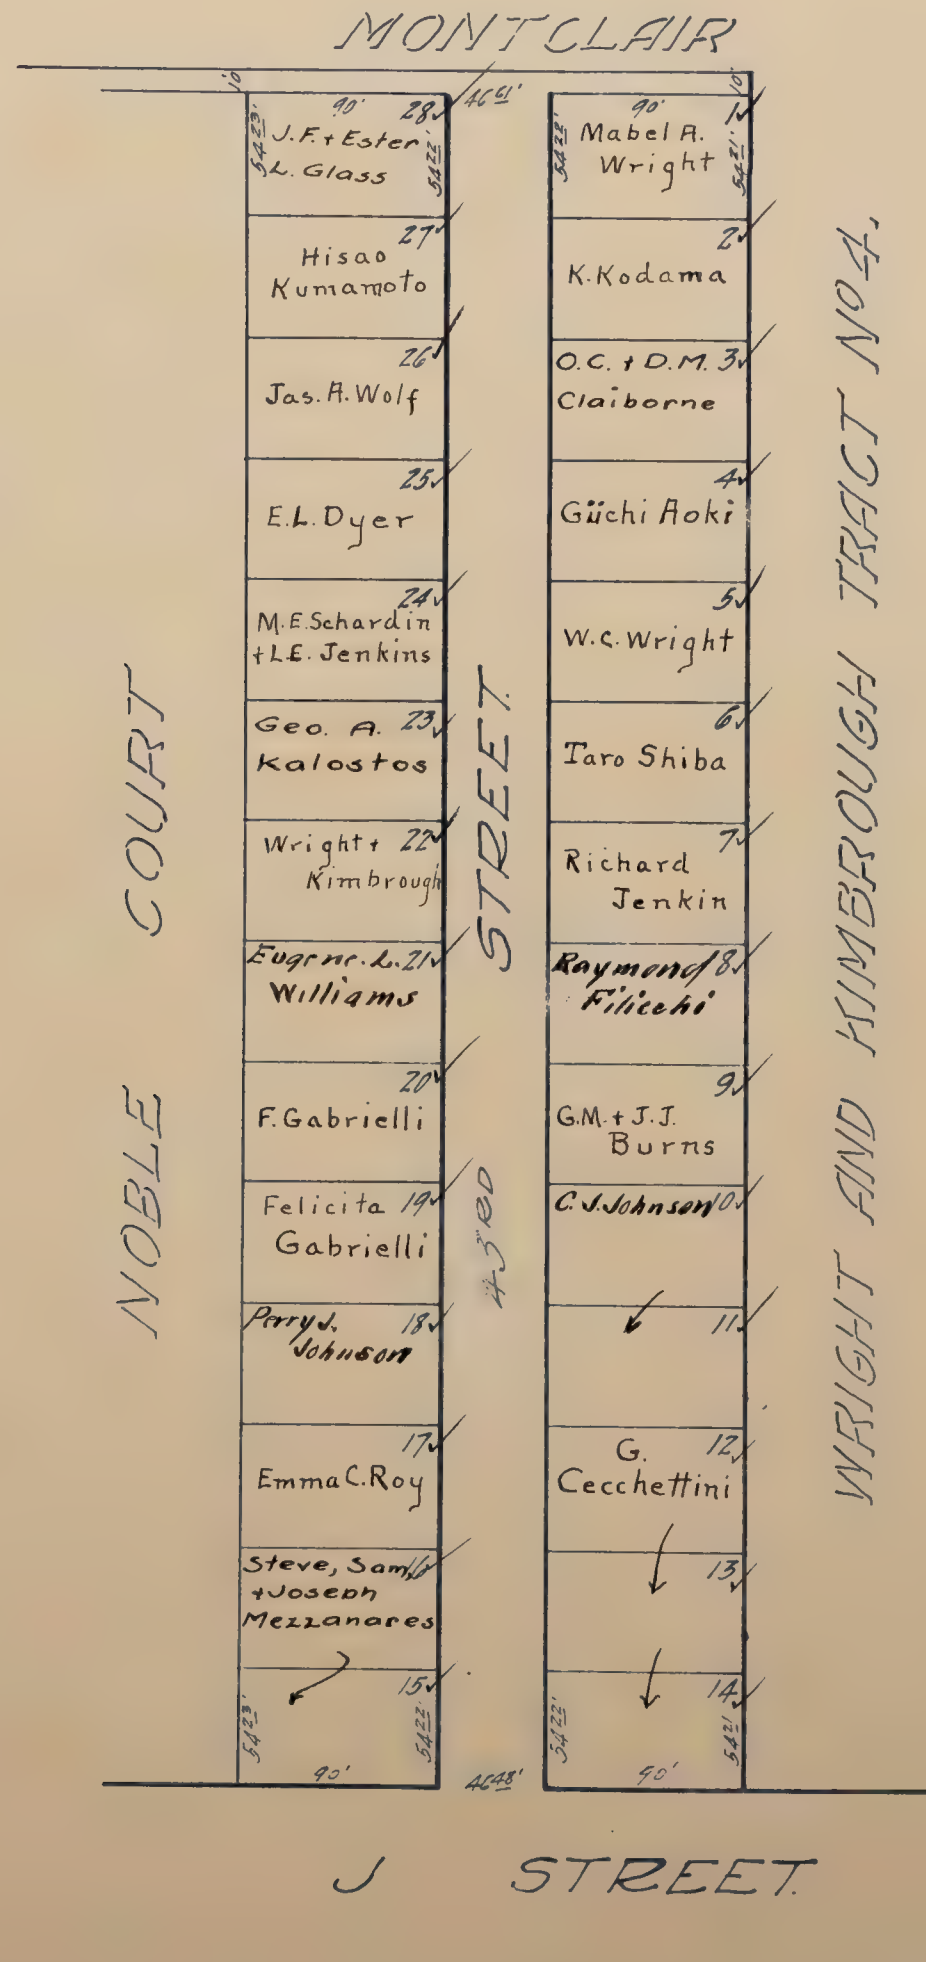 MONTCLAIR
10'
46 61'
10'
90'
28
54 23'
J.F. + Ester
L. Glass
54 22'
27
Hisao
Kumamoto
26
Jas. A. Wolf
25
E.L. Dyer
24
M.E. Schardin
+ L.E. Jenkins
Geo. A. 23
Kalostos
Wright + 22
Kimbrough
Eugene. L. 21
Williams
20
F. Gabrielli
Felicita 19
Gabrielli
Perry J. 18
Johnson
17
Emma C. Roy
Steve, Sam, 16
+ Joseph
Mezzanares
15
54 23'
54 22'
90'
90'
1
54 22'
Mabel A.
Wright
54 21'
2
K. Kodama
O.C. + D.M. 3
Claiborne
4
Giichi Aoki
5
W.C. Wright
6
Taro Shiba
7
Richard
Jenkin
Raymond 8
Filicchi
9
G.M. + J.J.
Burns
C. J. Johnson 10
11
G. 12
Cecchettini
13
14
54 22'
54 21'
90'
46 48'
NOBLE COURT
43RD STREET.
WRIGHT AND KIMBROUGH TRACT No 4.
J STREET.